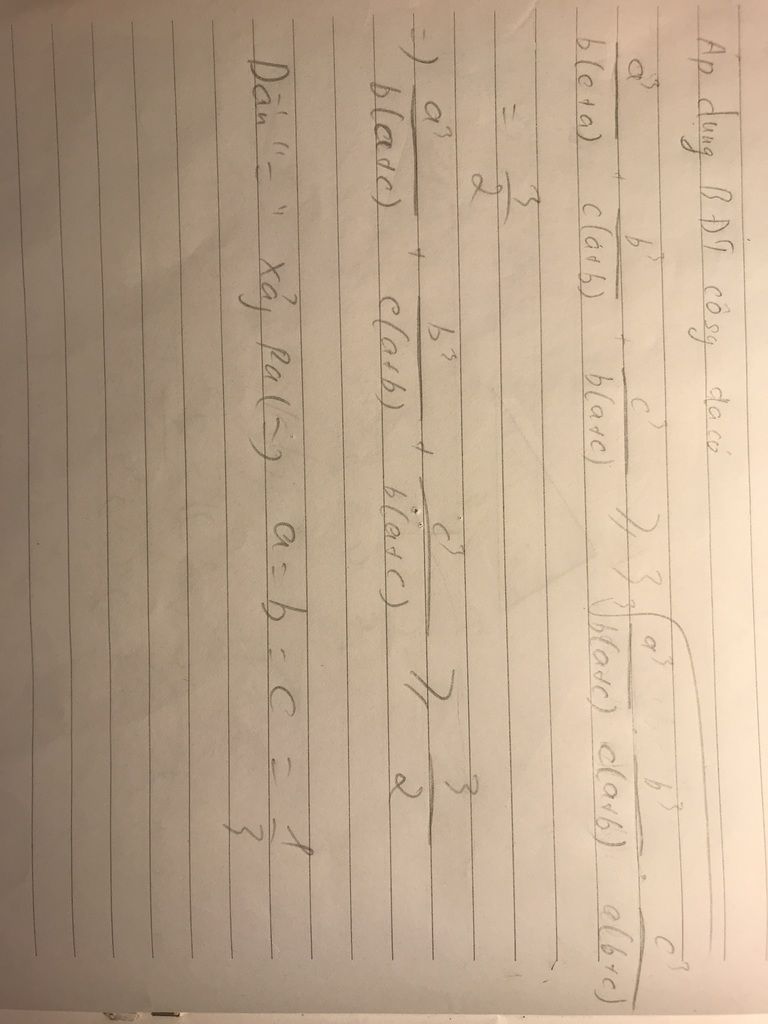 Áp dụng BĐT côsy ta có
a³/b(c+a) + b³/c(a+b) + c³/b(a+c) ≥ 3 ∛(a³/b(a+c) · b³/c(a+b) · c³/a(b+c))
= 3/2
=) a³/b(a+c) + b³/c(a+b) + c³/b(a+c) ≥ 3/2
Dấu "=" xảy ra (=) a = b = c = 1/3